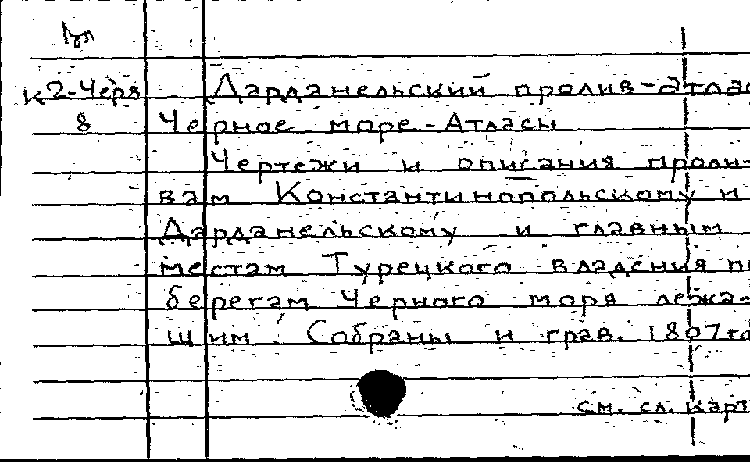 К2-Черв Дарданельский пролив-атлас
8 Черное море-Атласы
Чертежи и описания проли-
вам Константинопольскому и
Дарданельскому и главным
местам Турецкого владения п
берегам Черного моря лежа-
щим. Собраны и грав. 1807 го
см. сл. карт